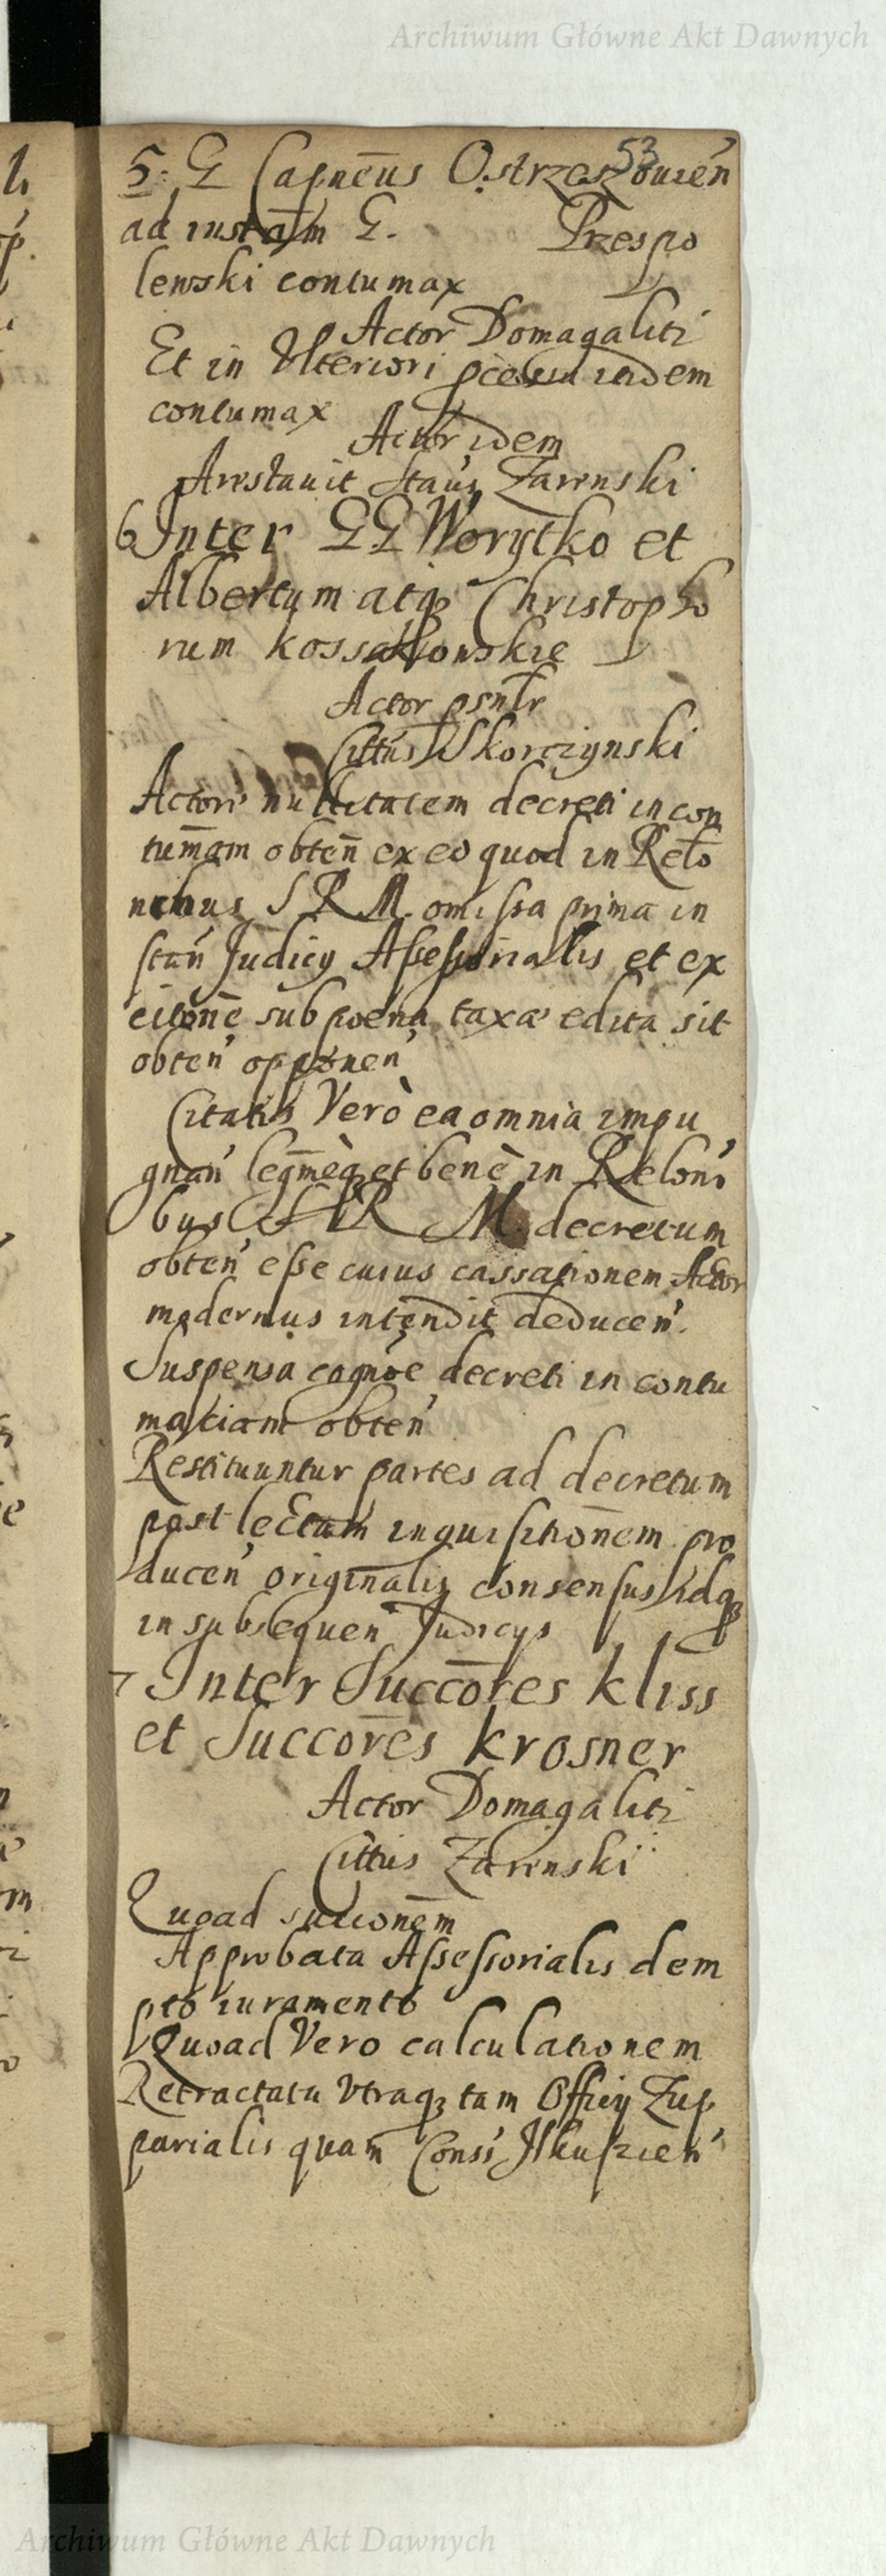 Archiwum Główne Akt Dawnych
53
5. G Capneus Ostrzeszouien
ad instam G. Przespo
lewski contumax
Actor Domagaliti
Et in Vlteriori pcessu iidem
contumax
Actor idem
Arestauit Staus Zarenski
6 Inter GG Worytko et
Albertum atq Christopho
rum kossakowskie
Actor psnlr
Cittus Skorczynski
Actore nullitatem decreti in con
tumam obten ex eo quod in Relo
nibus S R M omissa prima in
stan Judicy Assessorialis et ex
cilone sub poena taxae edita sit
obten opponen
Citatis Verò ea omnia impu
gnan legmèq et benè in Reloni
bus S R M decretum
obten esse cuius cassationem Actor
modernus intendit deducen.
Suspensa cognoe decreti in contu
matiam obten
Restituuntur partes ad decretum
post lectam inquisitionem pro
ducen originalis consensus idq
in subsequen Judicys
7 Inter Succores kliss
et Succores krosner
Actor Domagaliti
Cittus Zarenski
Quoad succonem
Approbata Assessorialis dem
pto iuramento
Quoad Vero calculationem
Retractata vtraq tam Officy Zup
parialis quam Conss Ilkuszien
Archiwum Główne Akt Dawnych